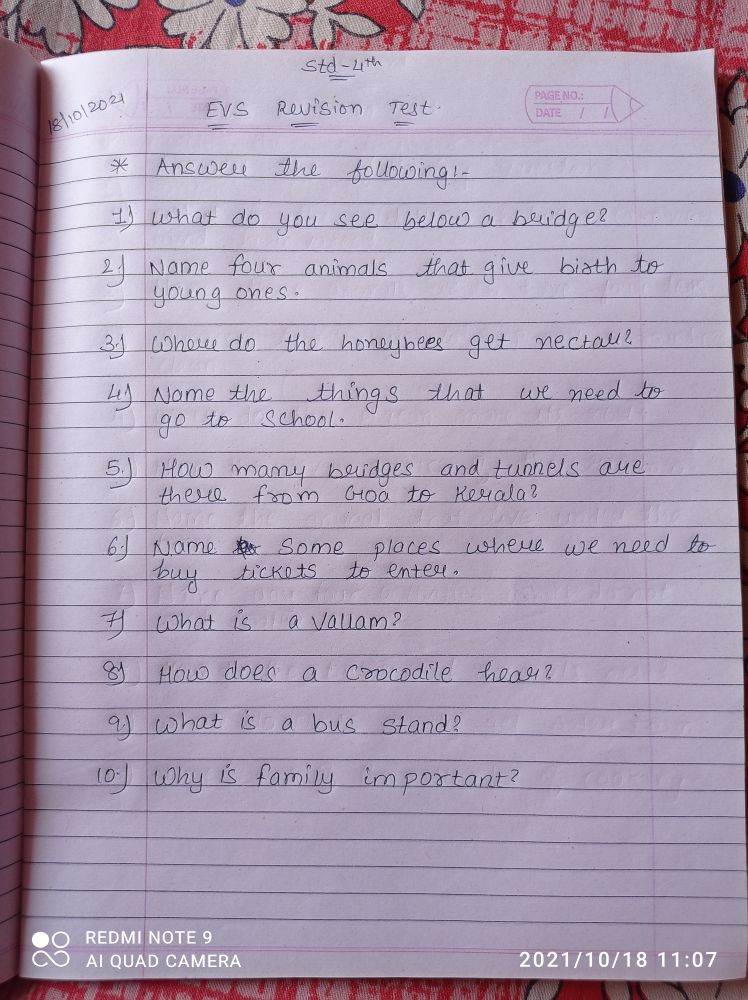 Std-4th
18/10/2021
EVS Revision Test.
PAGE NO.:
DATE / /
* Answer the following:-
1) What do you see below a bridge?
2) Name four animals that give birth to
young ones.
3) Where do the honeybees get nectar?
4) Name the things that we need to
go to school.
5.) How many bridges and tunnels are
there from Goa to Kerala?
6) Name some places where we need to
buy tickets to enter.
7) What is a Vallam?
8) How does a crocodile hear?
9.) What is a bus stand?
10.) Why is family important?
REDMI NOTE 9
AI QUAD CAMERA
2021/10/18 11:07